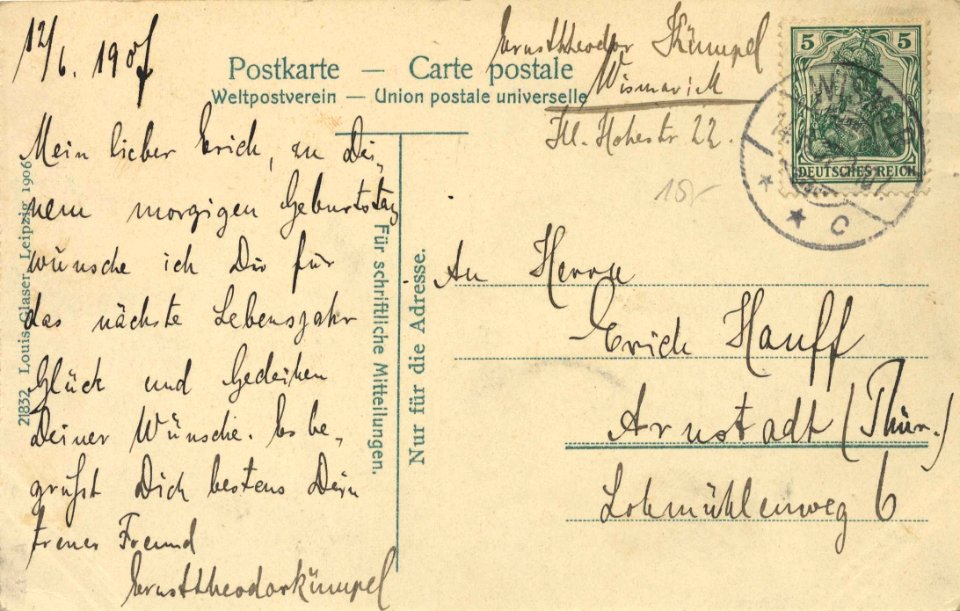 12/6. 1907
Ernsttheodor Kümpel
Wismar i. M
Kl. Hohestr 22.
Postkarte — Carte postale
Weltpostverein — Union postale universelle
5 5
DEUTSCHES REICH
C
15/-
Mein lieber Erich, zu Dei-
nem morgigen Geburtstag
wünsche ich Dir für
das nächste Lebensjahr
Glück und Gedeihen
Deiner Wünsche. Es be-
grüßt Dich bestens Dein
treuer Freund
Ernsttheodorkümpel
21832 Louis Glaser, Leipzig 1906
Für schriftliche Mitteilungen.
Nur für die Adresse.
An Herrn
Erich Hauff
Arnstadt (Thür.)
Lohmühlenweg 6